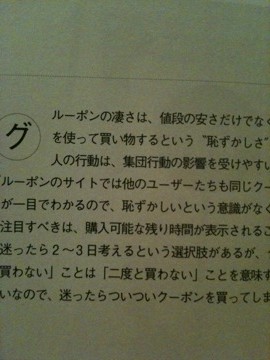 グルーポンの凄さは、値段の安さだけでなく
を使って買い物するという“恥ずかしさ”
人の行動は、集団行動の影響を受けやすい
グルーポンのサイトでは他のユーザーたちも同じクー
が一目でわかるので、恥ずかしいという意識がなく
注目すべきは、購入可能な残り時間が表示されるこ
迷ったら2〜3日考えるという選択肢があるが、
買わない」ことは「二度と買わない」ことを意味す
いなので、迷ったらついついクーポンを買ってしま